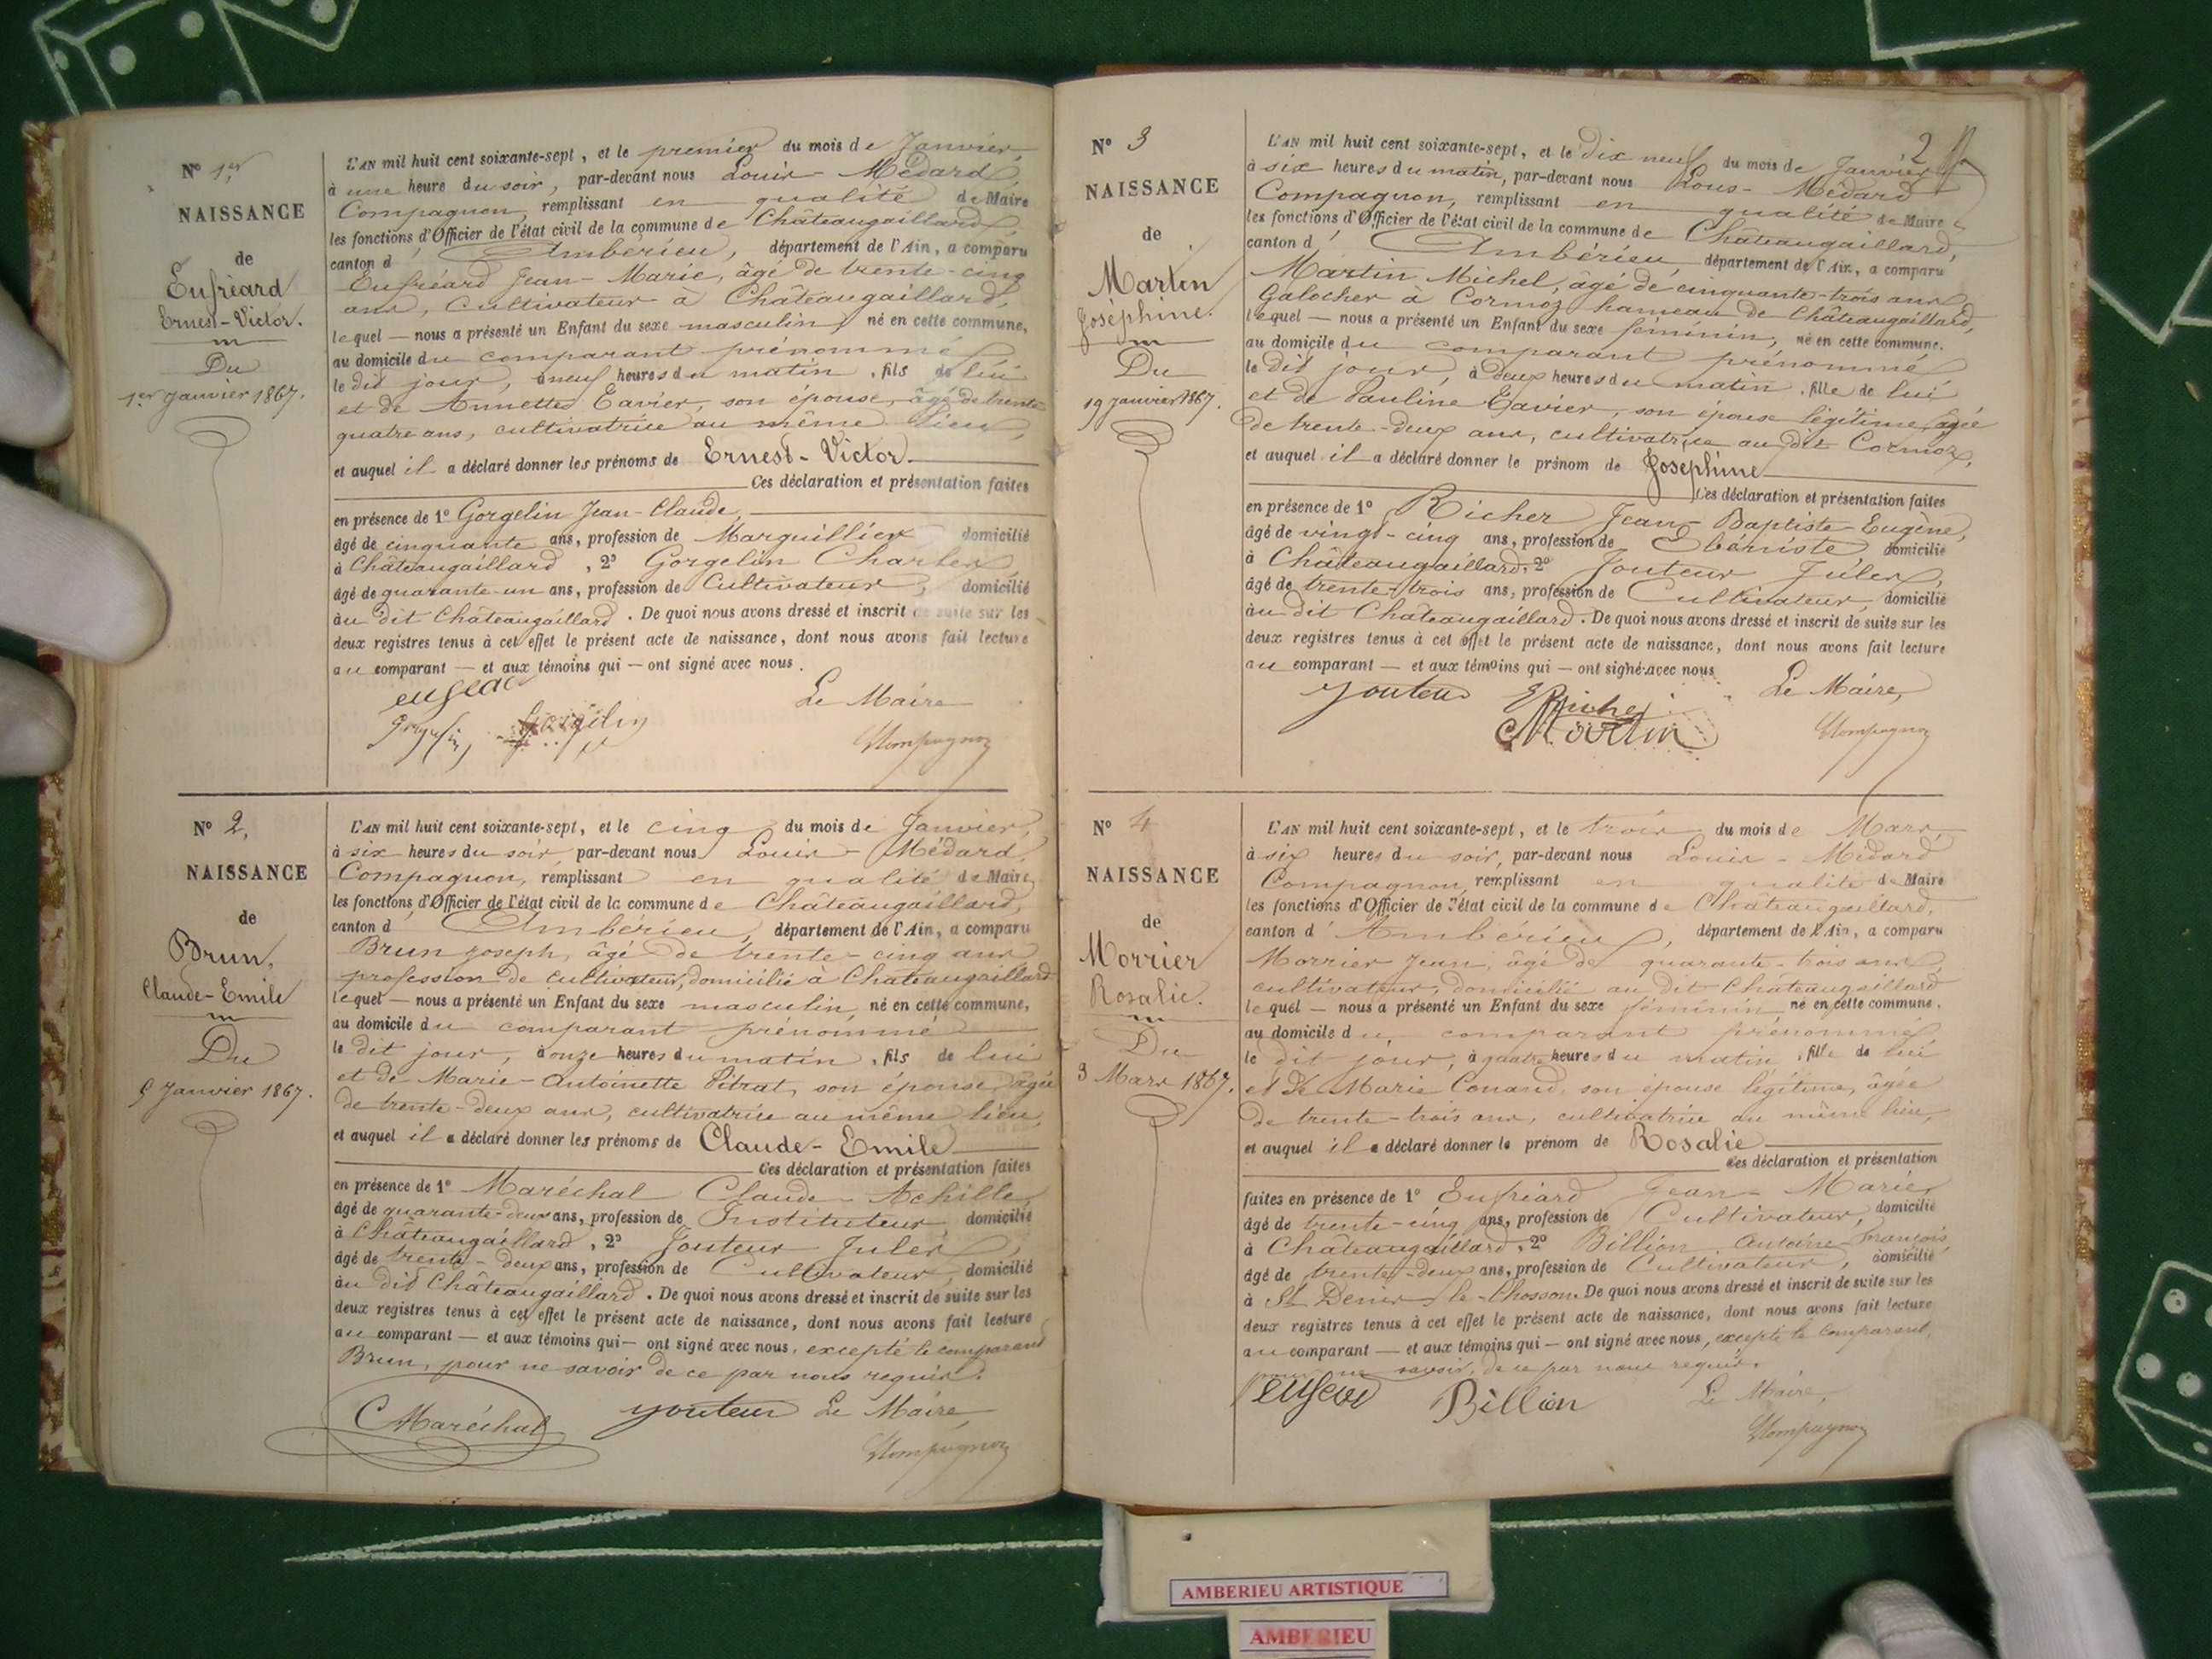 N° 1er
NAISSANCE
de
Eufréard
Ernest-Victor.
Du
1er Janvier 1867.
L'AN mil huit cent soixante-sept, et le premier du mois de Janvier,
à une heure du soir, par-devant nous Louis-Médard
Compagnon, remplissant en qualité de Maire
les fonctions d'Officier de l'état civil de la commune de Châteaugaillard,
canton d'Ambérieu, département de l'Ain, a comparu
Eufréard Jean-Marie, âgé de trente-cinq
ans, Cultivateur à Châteaugaillard,
lequel — nous a présenté un Enfant du sexe masculin, né en cette commune,
au domicile du comparant prénommé
le dit jour, à neuf heures du matin, fils de lui
et de Annette Eavier, son épouse, âgé de trente
quatre ans, cultivatrice au même lieu,
et auquel il a déclaré donner les prénoms de Ernest-Victor.
Ces déclaration et présentation faites
en présence de 1° Gorgelin Jean-Claude,
âgé de cinquante ans, profession de Marguillier domicilié
à Châteaugaillard, 2° Gorgelin Charles,
âgé de quarante-un ans, profession de Cultivateur, domicilié
au dit Châteaugaillard. De quoi nous avons dressé et inscrit de suite sur les
deux registres tenus à cet effet le présent acte de naissance, dont nous avons fait lecture
au comparant — et aux témoins qui — ont signé avec nous.
Le Maire
Gorgelin
Compagnon
N° 2,
NAISSANCE
de
Brun,
Claude-Emile
Du
5 Janvier 1867.
L'AN mil huit cent soixante-sept, et le cinq du mois de Janvier,
à six heures du soir, par-devant nous Louis-Médard
Compagnon, remplissant en qualité de Maire
les fonctions d'Officier de l'état civil de la commune de Châteaugaillard,
canton d'Ambérieu, département de l'Ain, a comparu
Brun Joseph, âgé de trente-cinq ans
profession de cultivateur, domicilié à Châteaugaillard
lequel — nous a présenté un Enfant du sexe masculin, né en cette commune,
au domicile du comparant prénommé
le dit jour, à onze heures du matin, fils de lui
et de Marie-Antoinette Pitrat, son épouse âgée
de trente-deux ans, cultivatrice au même lieu,
et auquel il a déclaré donner les prénoms de Claude-Emile
Ces déclaration et présentation faites
en présence de 1° Maréchal Claude-Achille,
âgé de quarante-deux ans, profession de Instituteur domicilié
à Châteaugaillard, 2° Jouteur Jules,
âgé de trente-deux ans, profession de Cultivateur, domicilié
au dit Châteaugaillard. De quoi nous avons dressé et inscrit de suite sur les
deux registres tenus à cet effet le présent acte de naissance, dont nous avons fait lecture
au comparant — et aux témoins qui — ont signé avec nous, excepté le comparant
Brun, pour ne savoir de ce par nous requis.
C Maréchal Jouteur Le Maire,
Compagnon
2
N° 3
NAISSANCE
de
Martin
Joséphine.
Du
19 Janvier 1867.
L'AN mil huit cent soixante-sept, et le dix neuf du mois de Janvier
à six heures du matin, par-devant nous Lous-Médard
Compagnon, remplissant en qualité de Maire
les fonctions d'Officier de l'état civil de la commune de Châteaugaillard,
canton d'Ambérieu, département de l'Ain, a comparu
Martin Michel, âgé de cinquante-trois ans
Galocher à Cormoz hameau de Châteaugaillard,
lequel — nous a présenté un Enfant du sexe féminin, né en cette commune.
au domicile du comparant prénommé
le dit jour, à deux heures du matin, fille de lui
et de Pauline Eavier, son épouse légitime, âgée
de trente-deux ans, cultivatrice au dit Cormoz,
et auquel il a déclaré donner le prénom de Joséphine
Ces déclaration et présentation faites
en présence de 1° Richer Jean-Baptiste-Eugène,
âgé de vingt-cinq ans, profession de Ebéniste domicilié
à Châteaugaillard, 2° Jouteur Jules,
âgé de trente-trois ans, profession de Cultivateur, domicilié
au dit Châteaugaillard. De quoi nous avons dressé et inscrit de suite sur les
deux registres tenus à cet effet le présent acte de naissance, dont nous avons fait lecture
au comparant — et aux témoins qui — ont signé avec nous
Jouteur Richer Le Maire,
Martin Compagnon
N° 4
NAISSANCE
de
Morrier
Rosalie.
Du
3 Mars 1867.
L'AN mil huit cent soixante-sept, et le trois du mois de Mars,
à six heures du soir, par-devant nous Louis-Médard
Compagnon, remplissant en qualité de Maire
les fonctions d'Officier de l'état civil de la commune de Châteaugaillard,
canton d'Ambérieu, département de l'Ain, a comparu
Morrier Jean, âgé de quarante-trois ans,
cultivateur, domicilié au dit Châteaugaillard
lequel — nous a présenté un Enfant du sexe féminin né en cette commune.
au domicile du comparant prénommé
le dit jour, à quatre heures du matin, fille de lui
et de Marie Conand, son épouse légitime, âgée
de trente-trois ans, cultivatrice au même lieu,
et auquel il a déclaré donner le prénom de Rosalie
Ces déclaration et présentation
faites en présence de 1° Eufréard Jean-Marie,
âgé de trente-cinq ans, profession de Cultivateur, domicilié
à Châteaugaillard, 2° Billion Antoine-François
âgé de trente-deux ans, profession de Cultivateur, domicilié
à St Denis-le-Chosson. De quoi nous avons dressé et inscrit de suite sur les
deux registres tenus à cet effet le présent acte de naissance, dont nous avons fait lecture
au comparant — et aux témoins qui — ont signé avec nous, excepté le comparant,
pour ne savoir, de ce par nous requis.
Billion Le Maire,
Compagnon
AMBERIEU ARTISTIQUE
AMBERIEU